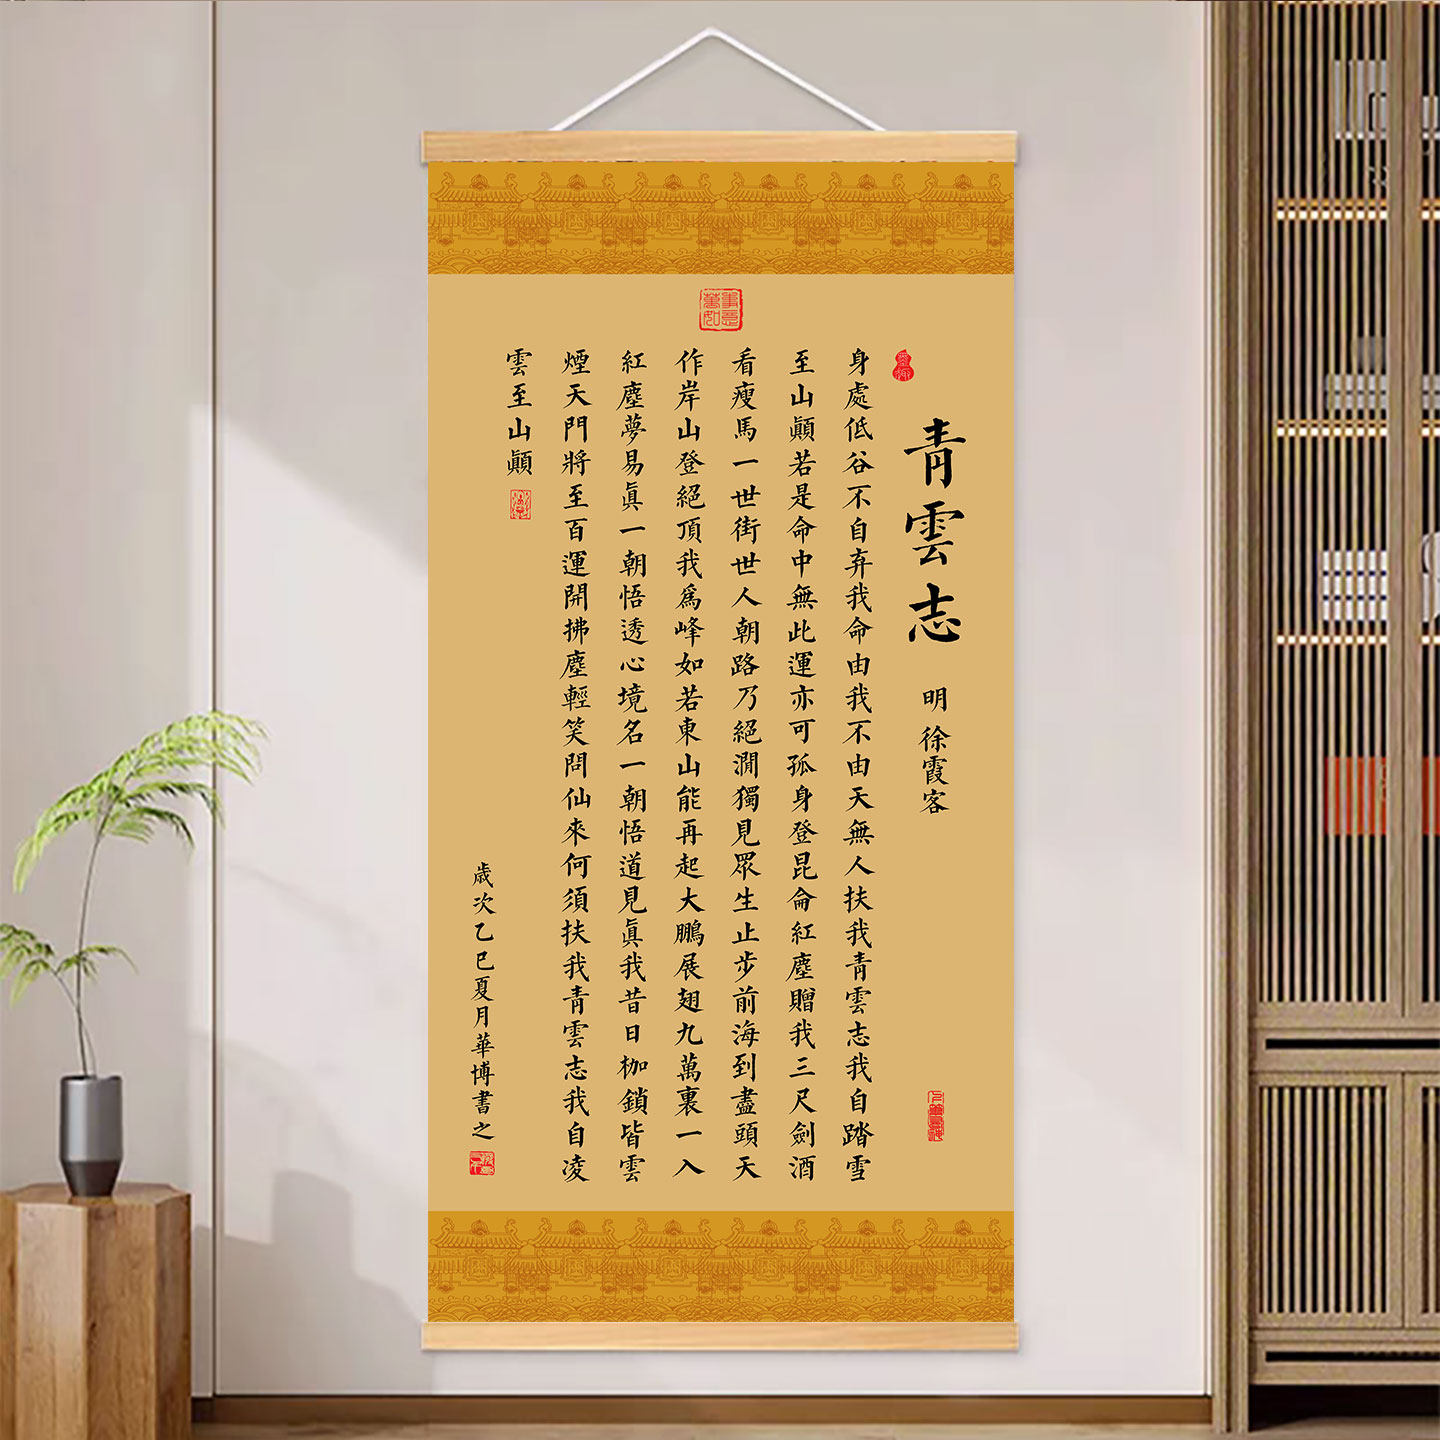 萬事如意
青雲志
明 徐霞客
身處低谷不自弃我命由我不由天無人扶我青雲志我自踏雪
至山顛若是命中無此運亦可孤身登昆侖紅塵贈我三尺劍酒
看瘦馬一世街世人朝路乃絕澗獨見眾生止步前海到盡頭天
作岸山登絕頂我爲峰如若東山能再起大鵬展翅九萬裏一入
紅塵夢易眞一朝悟透心境名一朝悟道見眞我昔日枷鎖皆雲
煙天門將至百運開拂塵輕笑問仙來何須扶我青雲志我自凌
雲至山顛
歲次乙巳夏月華博書之